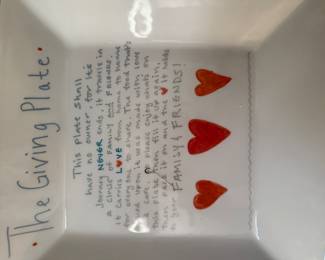 • The Giving Plate •
This plate shall
have no owner, for its
journey NEVER ends. it travels in
a circle of family and friends.
it carries LOVE from home to home
for everyone to share. The food that's
upon it was made with love
& care. So please enjoy what's on
this plate then fill it up again,
then pass it on and the love it holds
to your FAMILY & FRIENDS!